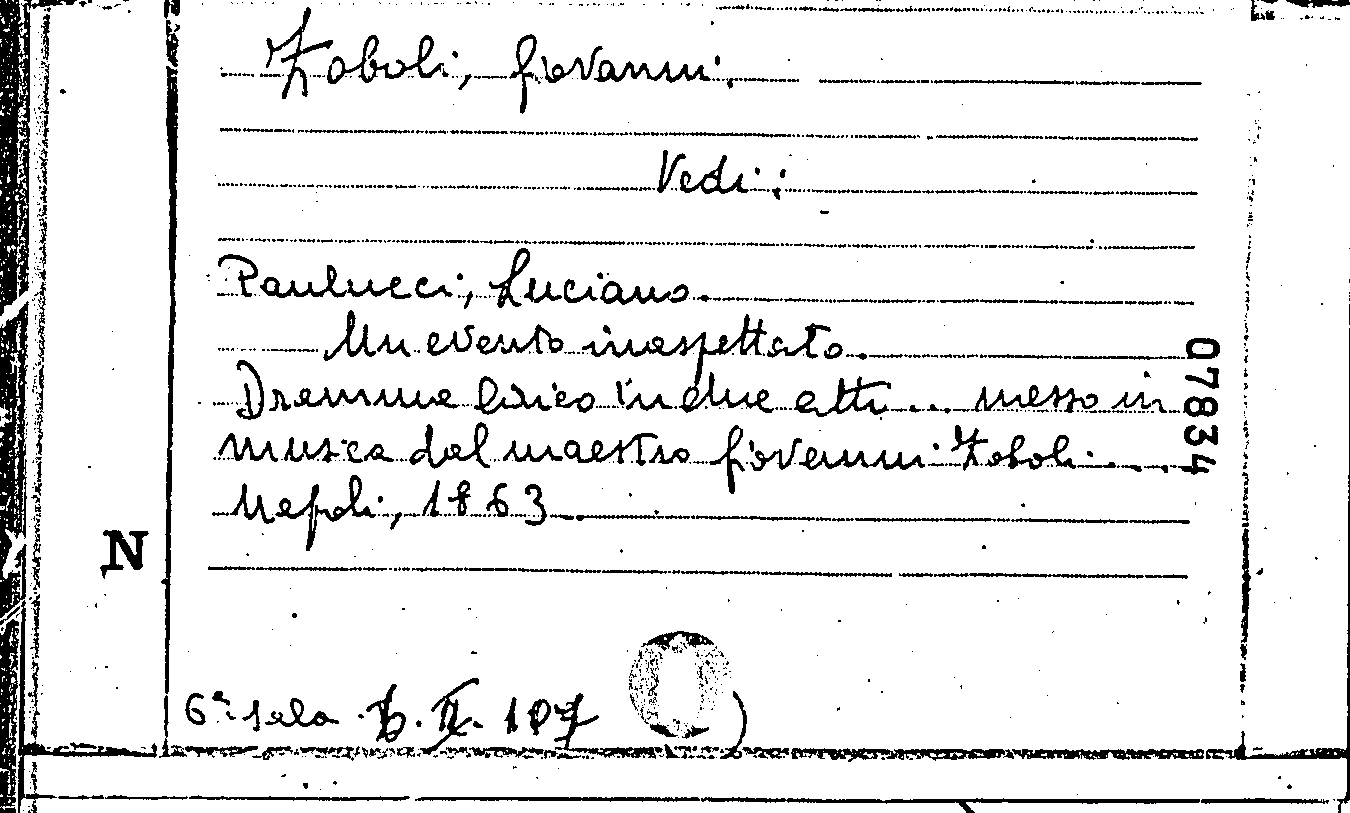 Zoboli, Giovanni.
Vedi:
Paulucci, Luciano.
Un evento inaspettato.
Dramma lirico in due atti... messo in
musica dal maestro Giovanni Zoboli....
Napoli, 1863.
N
6ª sala. II. 107
07834